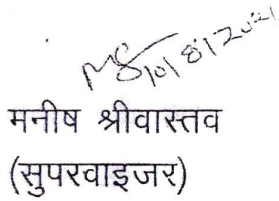 10/8/2021
मनीष श्रीवास्तव
(सुपरवाइजर)